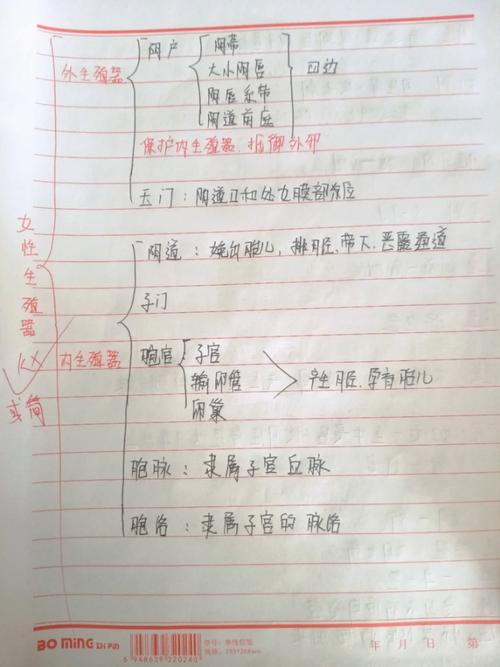 外生殖器
阴户
阴蒂
大小阴唇
阴唇系带
阴道前庭
四边
保护内生殖器、抵御外邪
玉门：阴道口和处女膜部位
女性生殖器
内生殖器
阴道：娩出胎儿，排月经、带下、恶露通道
子门
胞宫
子宫
输卵管
卵巢
产生月经、孕育胎儿
胞脉：隶属子宫血脉
胞络：隶属子宫的脉络
BO MING ZHI PIN
6 948639 220240
年 月 日 第